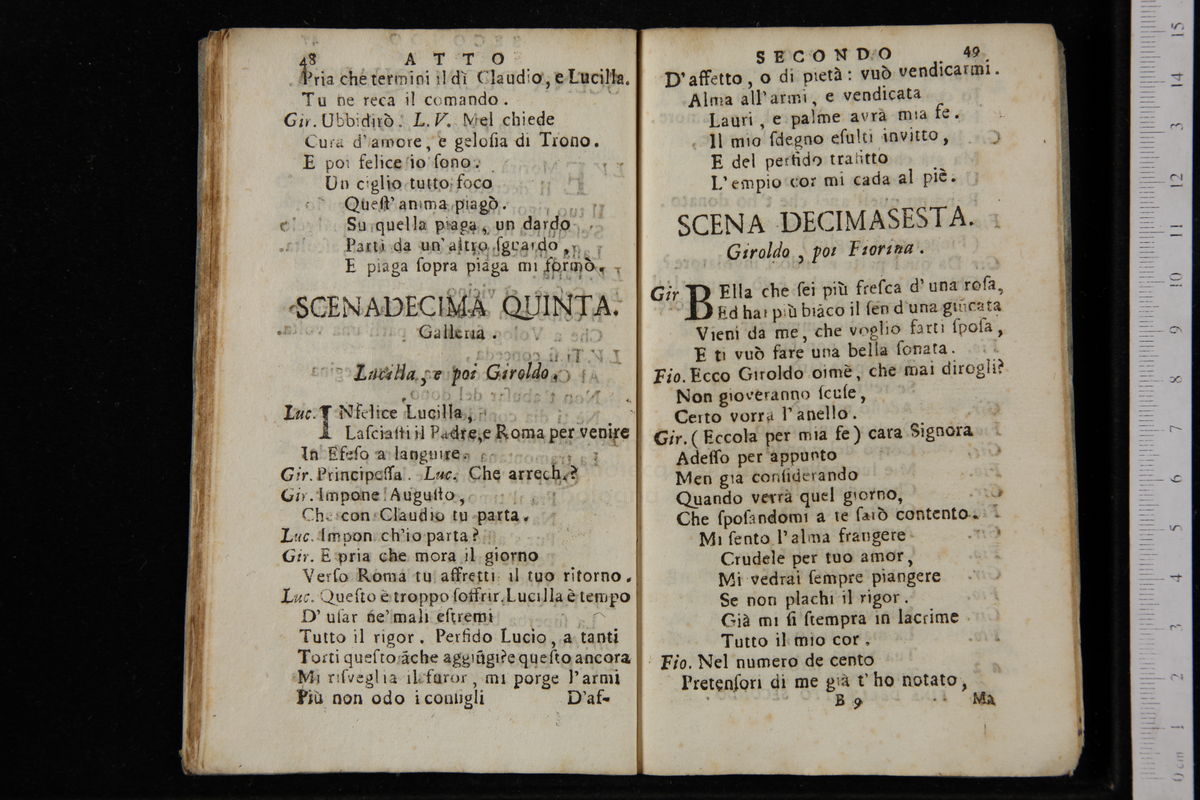 48 ATTO
Pria che termini il dì Claudio, e Lucilla.
Tu ne reca il comando.
Gir. Ubbidirò. L. V. Mel chiede
Cura d'amore, e gelosia di Trono.
E poi felice io sono.
Un ciglio tutto foco
Quest' anima piagò.
Su quella piaga, un dardo
Partì da un' altro sguardo,
E piaga sopra piaga mi formò.
SCENA DECIMA QUINTA.
Galleria.
Lucilla, e poi Giroldo.
Luc. INfelice Lucilla,
Lasciasti il Padre, e Roma per venire
In Efeso a languire.
Gir. Principessa. Luc. Che arrech.?
Gir. Impone Augusto,
Che con Claudio tu parta.
Luc. Impon ch'io parta?
Gir. E pria che mora il giorno
Verso Roma tu affretti il tuo ritorno.
Luc. Questo è troppo soffrir. Lucilla è tempo
D' usar ne' mali estremi
Tutto il rigor. Perfido Lucio, a tanti
Torti questo āche aggiūgi? e questo ancora
Mi risveglia il furor, mi porge l'armi
Più non odo i consigli
D'af-
SECONDO 49
D'affetto, o di pietà: vuò vendicarmi.
Alma all'armi, e vendicata
Lauri, e palme avrà mia fe.
Il mio sdegno esulti invitto,
E del perfido trafitto
L'empio cor mi cada al piè.
SCENA DECIMASESTA.
Giroldo, poi Fiorina.
Gir BElla che sei più fresca d'una rosa,
Ed hai più biāco il sen d'una giūcata
Vieni da me, che voglio farti sposa,
E ti vuò fare una bella sonata.
Fio. Ecco Giroldo oimè, che mai dirogli?
Non gioveranno scuse,
Certo vorrà l'anello.
Gir. (Eccola per mia fe) cara Signora
Adesso per appunto
Men gia considerando
Quando verrà quel giorno,
Che sposandomi a te sarò contento.
Mi sento l'alma frangere
Crudele per tuo amor,
Mi vedrai sempre piangere
Se non plachi il rigor.
Già mi si stempra in lacrime
Tutto il mio cor.
Fio. Nel numero de cento
Pretensori di me già t'ho notato,
B 9 Ma
15
14
13
12
11
10
9
8
7
6
5
4
3
2
1
0 cm